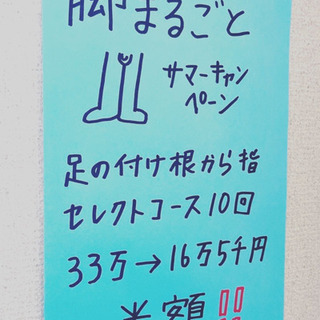 脚まるごと
サマーキャン
ペーン
足の付け根から指
セレクトコース10回
33万→16万5千円
半額!!